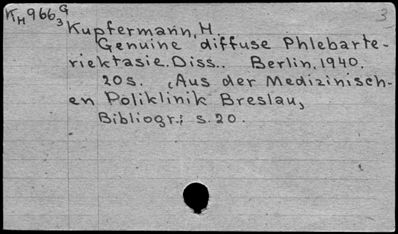 KH966 G 3
3
Kupfermann, H.
Genuine diffuse Phlebarte-
riektasie. Diss.. Berlin, 1940.
20s. (Aus der Medizinisch-
en Poliklinik Breslau,
Bibliogr.; s.20.